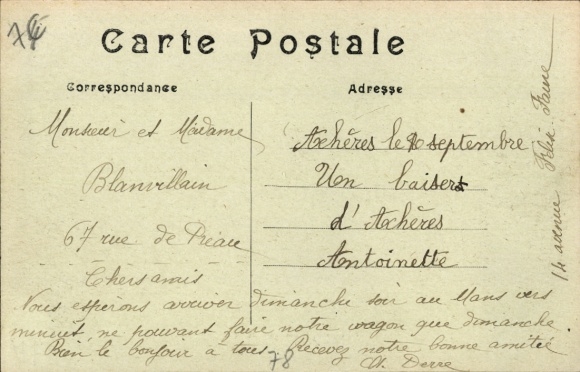 Carte Postale
Correspondance
Adresse
Monsieur et Madame
Blanvillain
67 rue de Préau
Chers amis
Nous espérons arriver dimanche soir au Mans vers
minuit, ne pouvant faire notre wagon que dimanche
Bien le bonjour à tous. Recevez notre bonne amitié
A. Derre
Axhères le septembre
Un baiser
d'Axhères
Antoinette
14 avenue Félix Faure
78